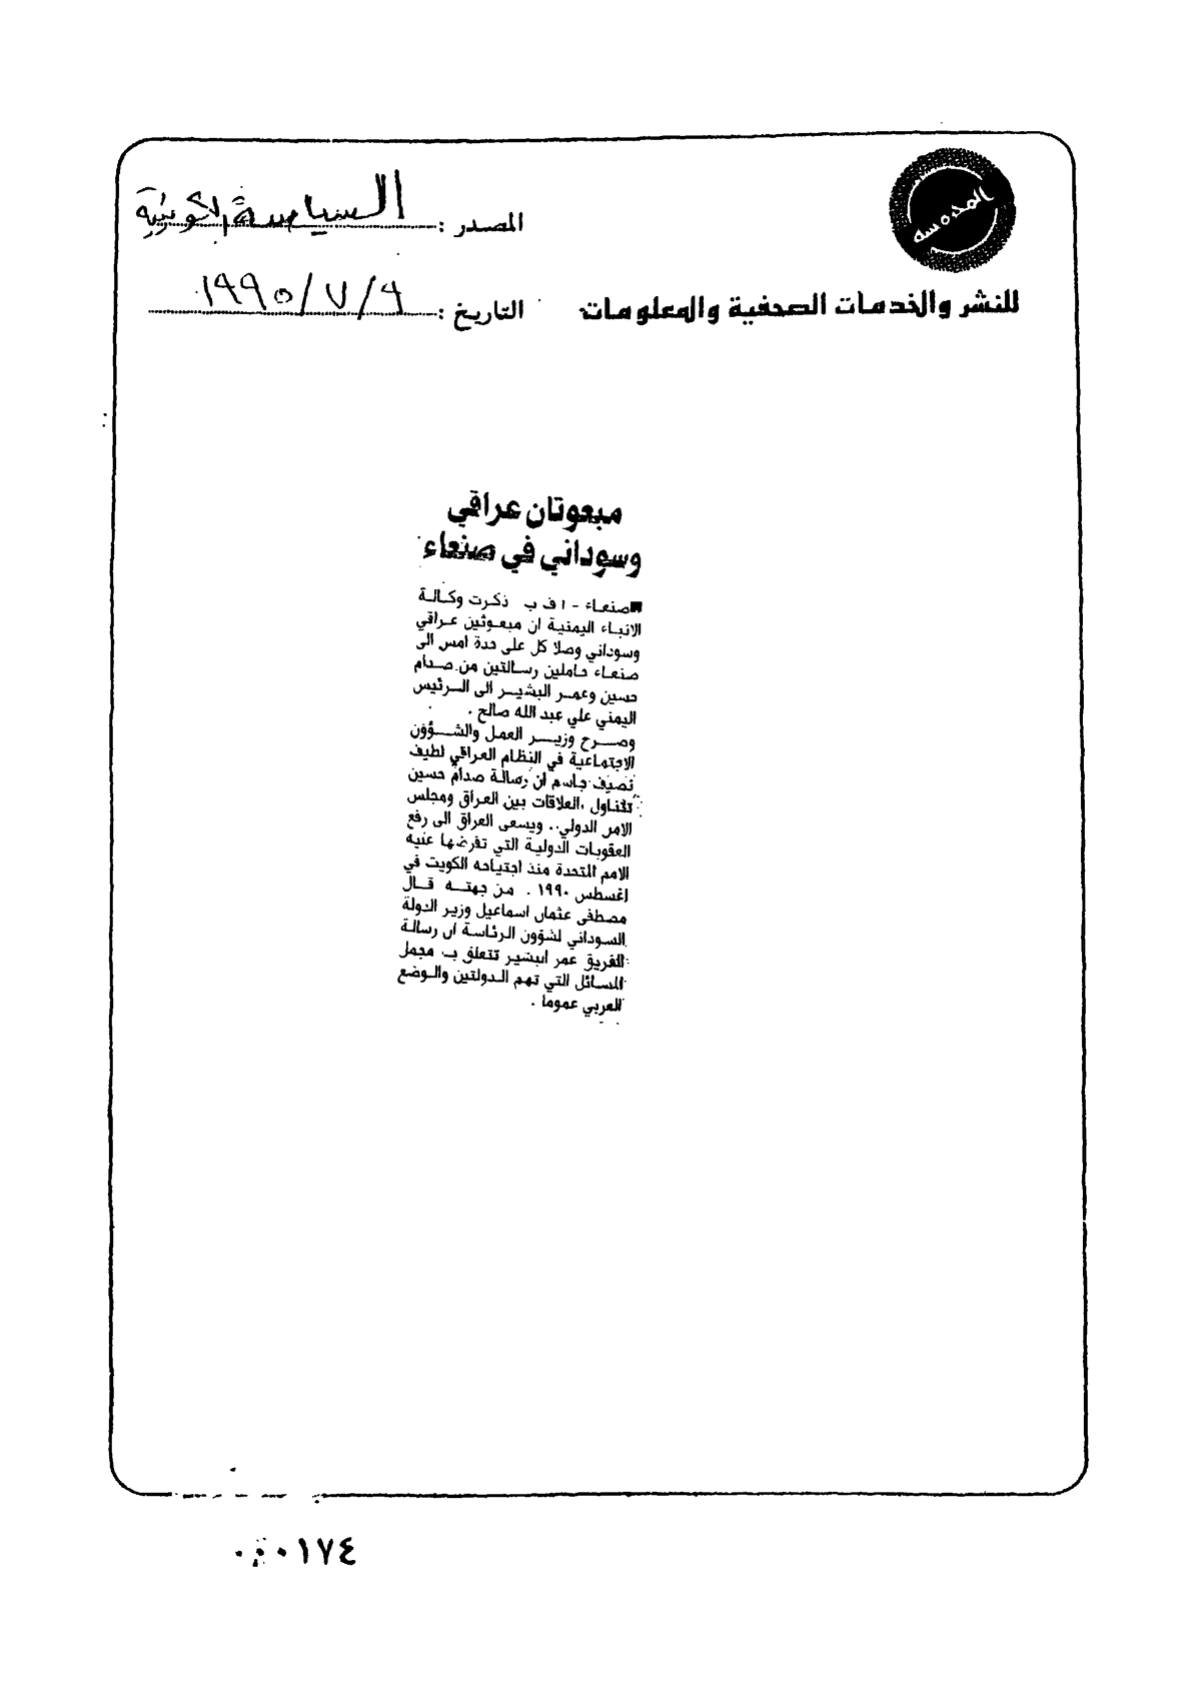 المدمسه
للنشر والخدمات الصحفية والمعلومات
المصدر : السياسة الكويتية
التاريخ : ٩/٧/١٩٩٥
مبعوثان عراقي
وسوداني في صنعاء
صنعاء - ا ف ب ذكرت وكالة
الانباء اليمنية ان مبعوثين عراقي
وسوداني وصلا كل على حدة امس الى
صنعاء حاملين رسالتين من صدام
حسين وعمر البشير الى الرئيس
اليمني علي عبد الله صالح .
وصرح وزير العمل والشؤون
الاجتماعية في النظام العراقي لطيف
نصيف جاسم ان رسالة صدام حسين
تتناول العلاقات بين العراق ومجلس
الامن الدولي.. ويسعى العراق الى رفع
العقوبات الدولية التي تفرضها عليه
الامم المتحدة منذ اجتياحه الكويت في
اغسطس ١٩٩٠ . من جهته قال
مصطفى عثمان اسماعيل وزير الدولة
السوداني لشؤون الرئاسة ان رسالة
الفريق عمر البشير تتعلق ب مجمل
المسائل التي تهم الدولتين والوضع
العربي عموما .
٠٠٠١٧٤